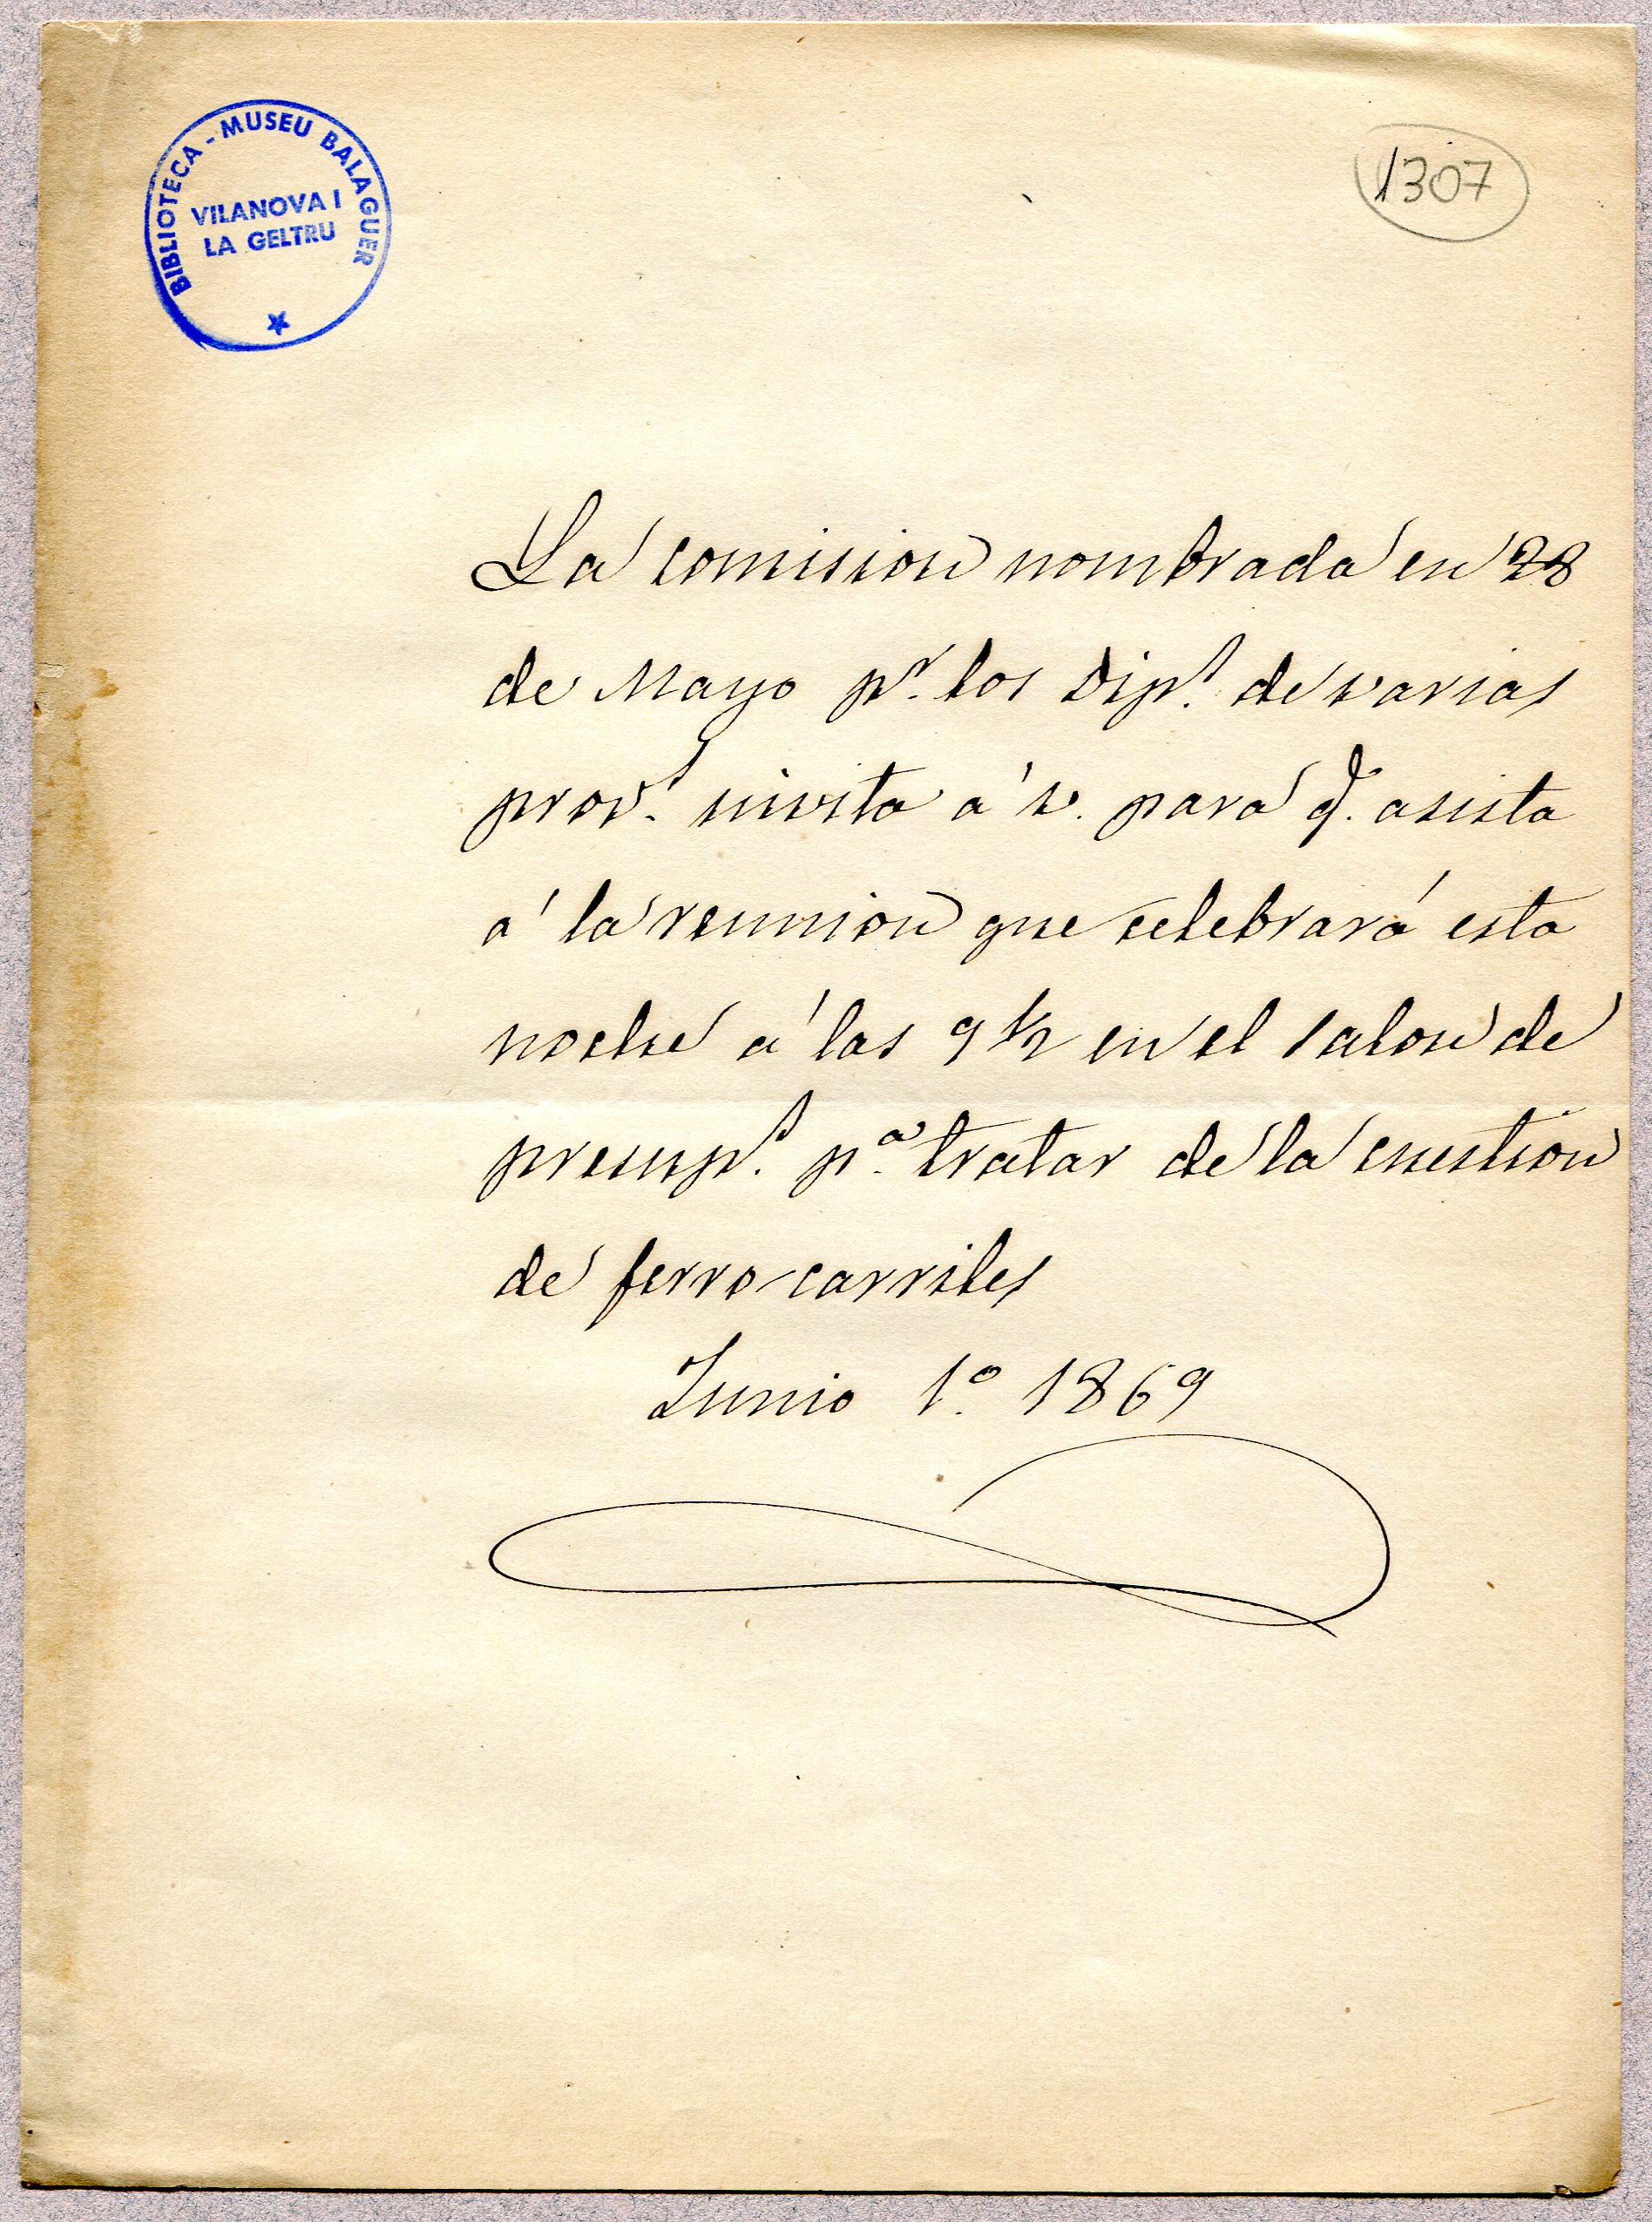 BIBLIOTECA - MUSEU BALAGUER
VILANOVA I
LA GELTRU
1307
La comision nombrada en 28
de Mayo p.r los Dip.s de varias
prov.s invita á V. para q.e asista
á la reunion que celebrará esta
noche á las 9 ½ en el salon de
presup.s p.a tratar de la cuestion
de ferro-carriles
Junio 1.o 1869